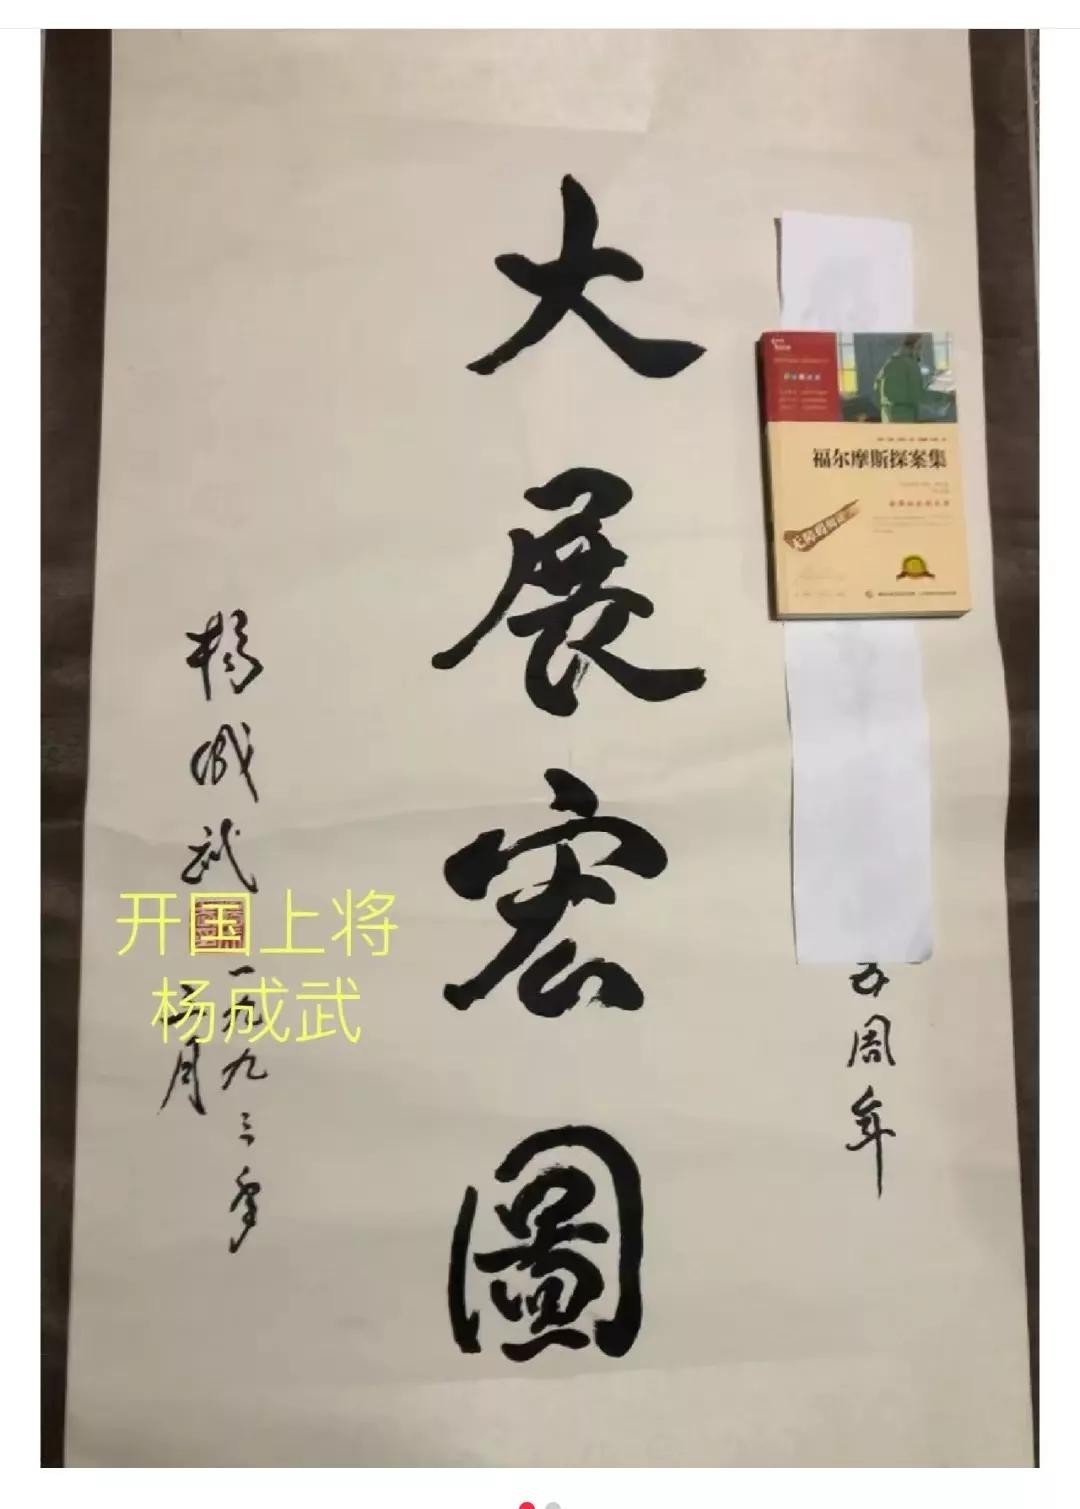 大展宏圖
五周年
杨成武
一九九三年
二月
开国上将
杨成武
福尔摩斯探案集